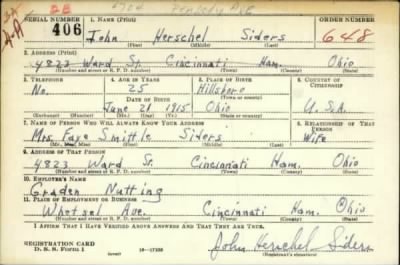 4704 PEABODY AVE
SERIAL NUMBER 1. NAME (Print) ORDER NUMBER
406 John Herschel Siders 648
(First) (Middle) (Last)
2. ADDRESS (Print)
4823 Ward St. Cincinnati Ham. Ohio
(Number and street or R. F. D. number) (Town) (County) (State)
3. TELEPHONE 4. AGE IN YEARS 5. PLACE OF BIRTH 6. COUNTRY OF CITIZENSHIP
No. 25 Hillsboro
DATE OF BIRTH (Town or county)
June 21 1915 Ohio U.S.A.
(Mo.) (Day) (Yr.) (State or country)
7. NAME OF PERSON WHO WILL ALWAYS KNOW YOUR ADDRESS 8. RELATIONSHIP OF THAT PERSON
Mrs. Faye Smittle Siders Wife
(Mr., Mrs., Miss) (First) (Middle) (Last)
9. ADDRESS OF THAT PERSON
4823 Ward St. Cincinnati Ham. Ohio
(Number and street or R. F. D. number) (Town) (County) (State)
10. EMPLOYER'S NAME
Graden Nutting
11. PLACE OF EMPLOYMENT OR BUSINESS
Whetsel Ave. Cincinnati Ham. Ohio
(Number and street or R. F. D. number) (Town) (County) (State)
I AFFIRM THAT I HAVE VERIFIED ABOVE ANSWERS AND THAT THEY ARE TRUE.
REGISTRATION CARD
D. S. S. FORM 1 16-17105 John Herschel Siders
(over) (Registrant's signature)